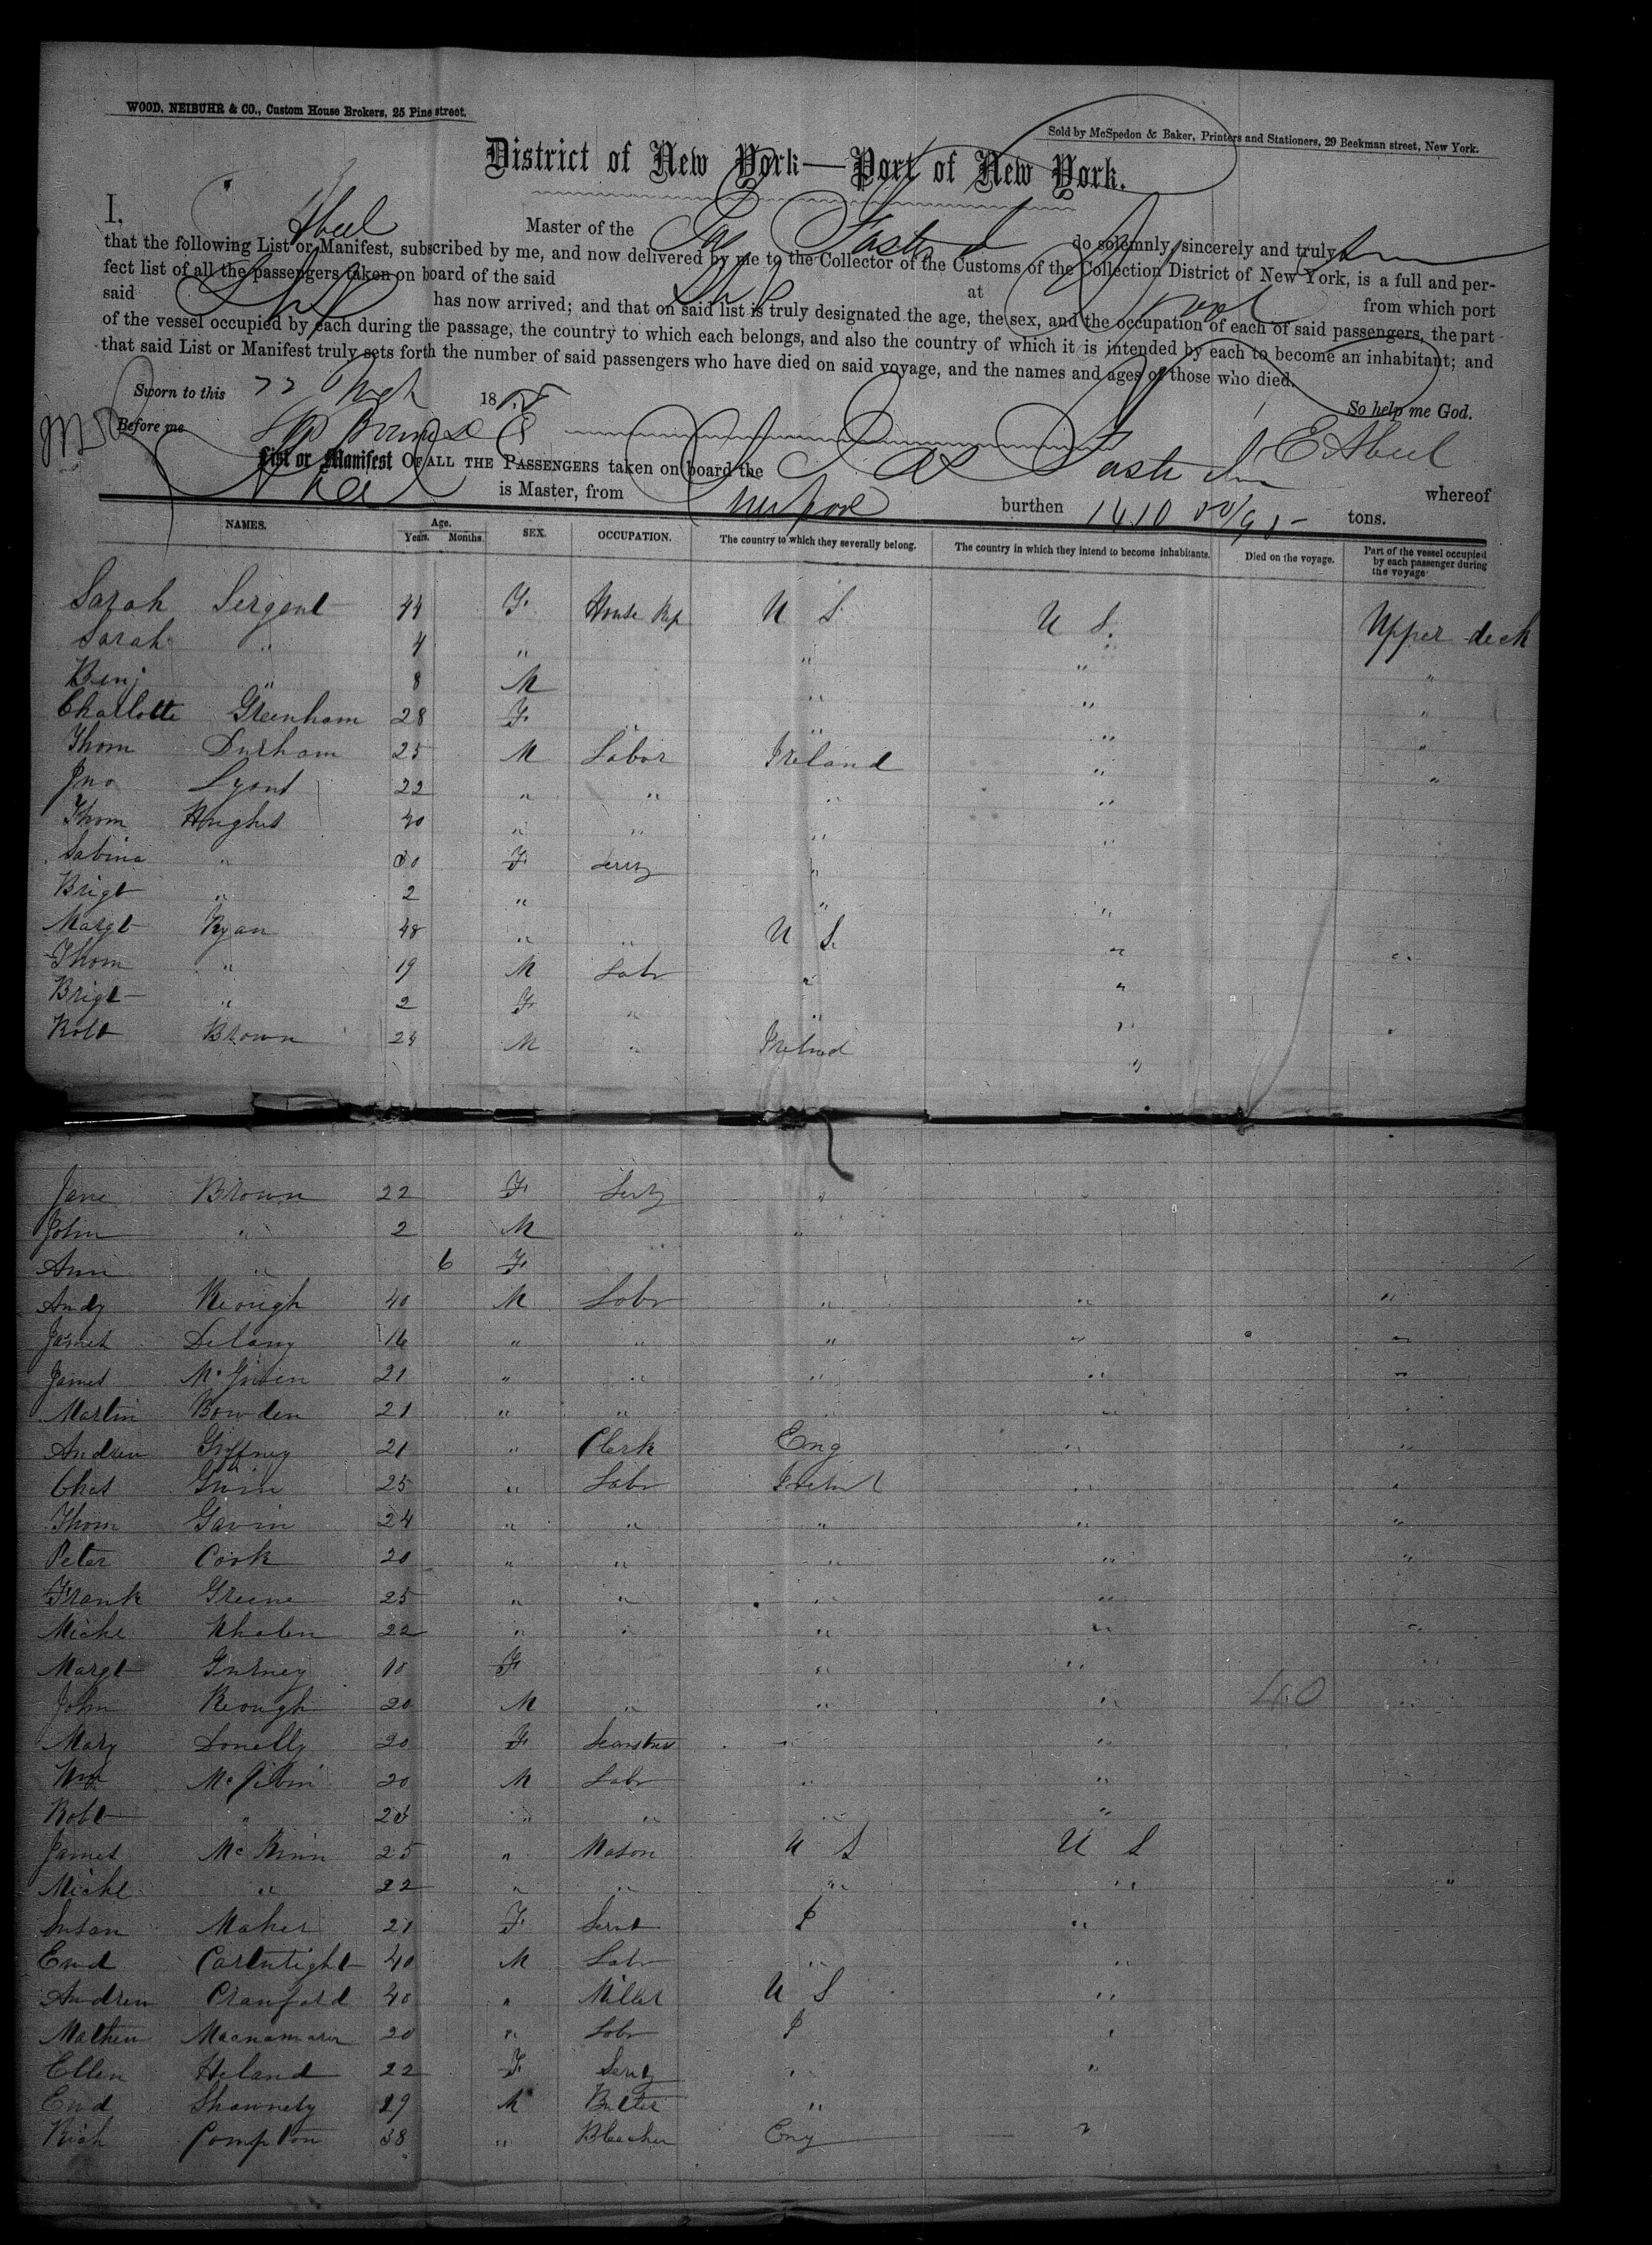 WOOD, NEIBUHR & CO., Custom House Brokers, 25 Pine street.
Sold by McSpedon & Baker, Printers and Stationers, 29 Beekman street, New York.
District of New York—Port of New York.
I, E Abeel Master of the do solemnly, sincerely and truly
that the following List or Manifest, subscribed by me, and now delivered by me to the Collector of the Customs of the Collection District of New York, is a full and per-
fect list of all the passengers taken on board of the said Ship at from which port
said Ship has now arrived; and that on said list is truly designated the age, the sex, and the occupation of each of said passengers, the part
of the vessel occupied by each during the passage, the country to which each belongs, and also the country of which it is intended by each to become an inhabitant; and
that said List or Manifest truly sets forth the number of said passengers who have died on said voyage, and the names and ages of those who died.
Sworn to this 18 So help me God.
Before me E Abeel
List or Manifest OF ALL THE PASSENGERS taken on board the whereof
is Master, from Liverpool burthen 1410 50/95 tons.
NAMES. Age. Years. Months. SEX. OCCUPATION. The country to which they severally belong. The country in which they intend to become inhabitants. Died on the voyage. Part of the vessel occupied by each passenger during the voyage
Sarah Sergent 44 F House Kep U S U S. Upper deck
Sarah " 4 " " " "
Benj " 8 M " " "
Charlotte Greenham 28 F " " " "
Thom Durham 25 M Labor Ireland " "
Jno Lyons 22 " " " "
Thom Hughes 40 " " " "
Sabina " 30 F "
Brigt " 2 " " "
Margt Ryan 48 " " U S. " "
Thom " 19 M Labr " "
Brigt " 2 F " " " "
Robt Brown 24 M " Irelnd "
Jane Brown 22 F "
John " 2 M "
Ann " 6 F
Andy Keough 40 M Labr " " "
James Delany 16 " " " " "
James 21 " " " " "
Martin Bowden 21 " " " "
Andrew Gaffney 21 " Clerk Eng " "
Chas 25 " Labr " "
Thom Gavin 24 " " " " "
Peter Cook 20 " " " " "
Frank Greene 25 " " " "
Michl Whalen 22 " " " " "
Margt Gurney 18 F " " "
John Keough 20 M " " " 40 "
Mary Donelly 20 F " "
Wm McGibin 20 M Labr " "
Robt " " " " "
James McKinn 25 " Mason U S U S
Michl " 22 " " " " "
Susan Maher 21 F Servt "
Edwd Cartwright 40 M Labr " "
Andrew Cranford 40 " Miller U S "
Mathew Macnamara 20 " Labr "
Ellen Heland 22 F " "
Edwd Shawnesy 29 M Butler "
Rich Compton 38 " Bleacher Eng "